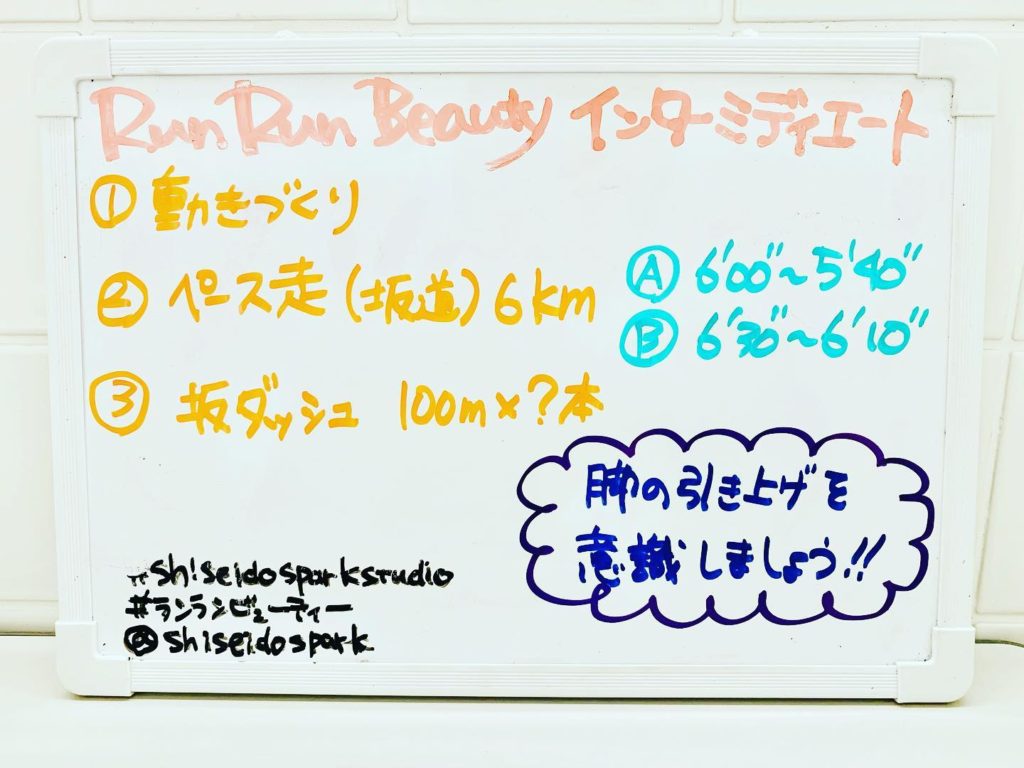 Run Run Beauty インターミディエート
① 動きづくり
② ペース走 (坂道) 6km
Ⓐ 6'00"~5'40"
Ⓑ 6'30"~6'10"
③ 坂ダッシュ 100m×?本
脚の引き上げを
意識しましょう!!
#shiseidosparkstudio
#ランランビューティー
@shiseidospark